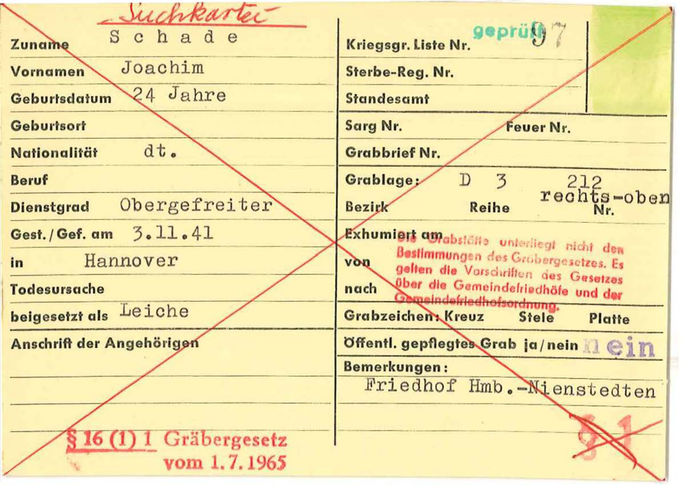 Suchkartei
Zuname Schade
Vornamen Joachim
Geburtsdatum 24 Jahre
Geburtsort
Nationalität dt.
Beruf
Dienstgrad Obergefreiter
Gest./Gef. am 3.11.41
in Hannover
Todesursache
beigesetzt als Leiche
Anschrift der Angehörigen
§ 16 (1) 1 Gräbergesetz
vom 1.7.1965
geprüft 97
Kriegsgr. Liste Nr.
Sterbe-Reg. Nr.
Standesamt
Sarg Nr. Feuer Nr.
Grabbrief Nr.
Grablage: D 3 212
rechts-oben
Bezirk Reihe Nr.
Exhumiert am
von
nach
Die Grabstätte unterliegt nicht den
Bestimmungen des Gräbergesetzes. Es
gelten die Vorschriften des Gesetzes
über die Gemeindefriedhöfe und der
Gemeindefriedhofsordnung.
Grabzeichen: Kreuz Stele Platte
Öffentl. gepflegtes Grab ja/nein nein
Bemerkungen:
Friedhof Hmb.-Nienstedten
§ 1